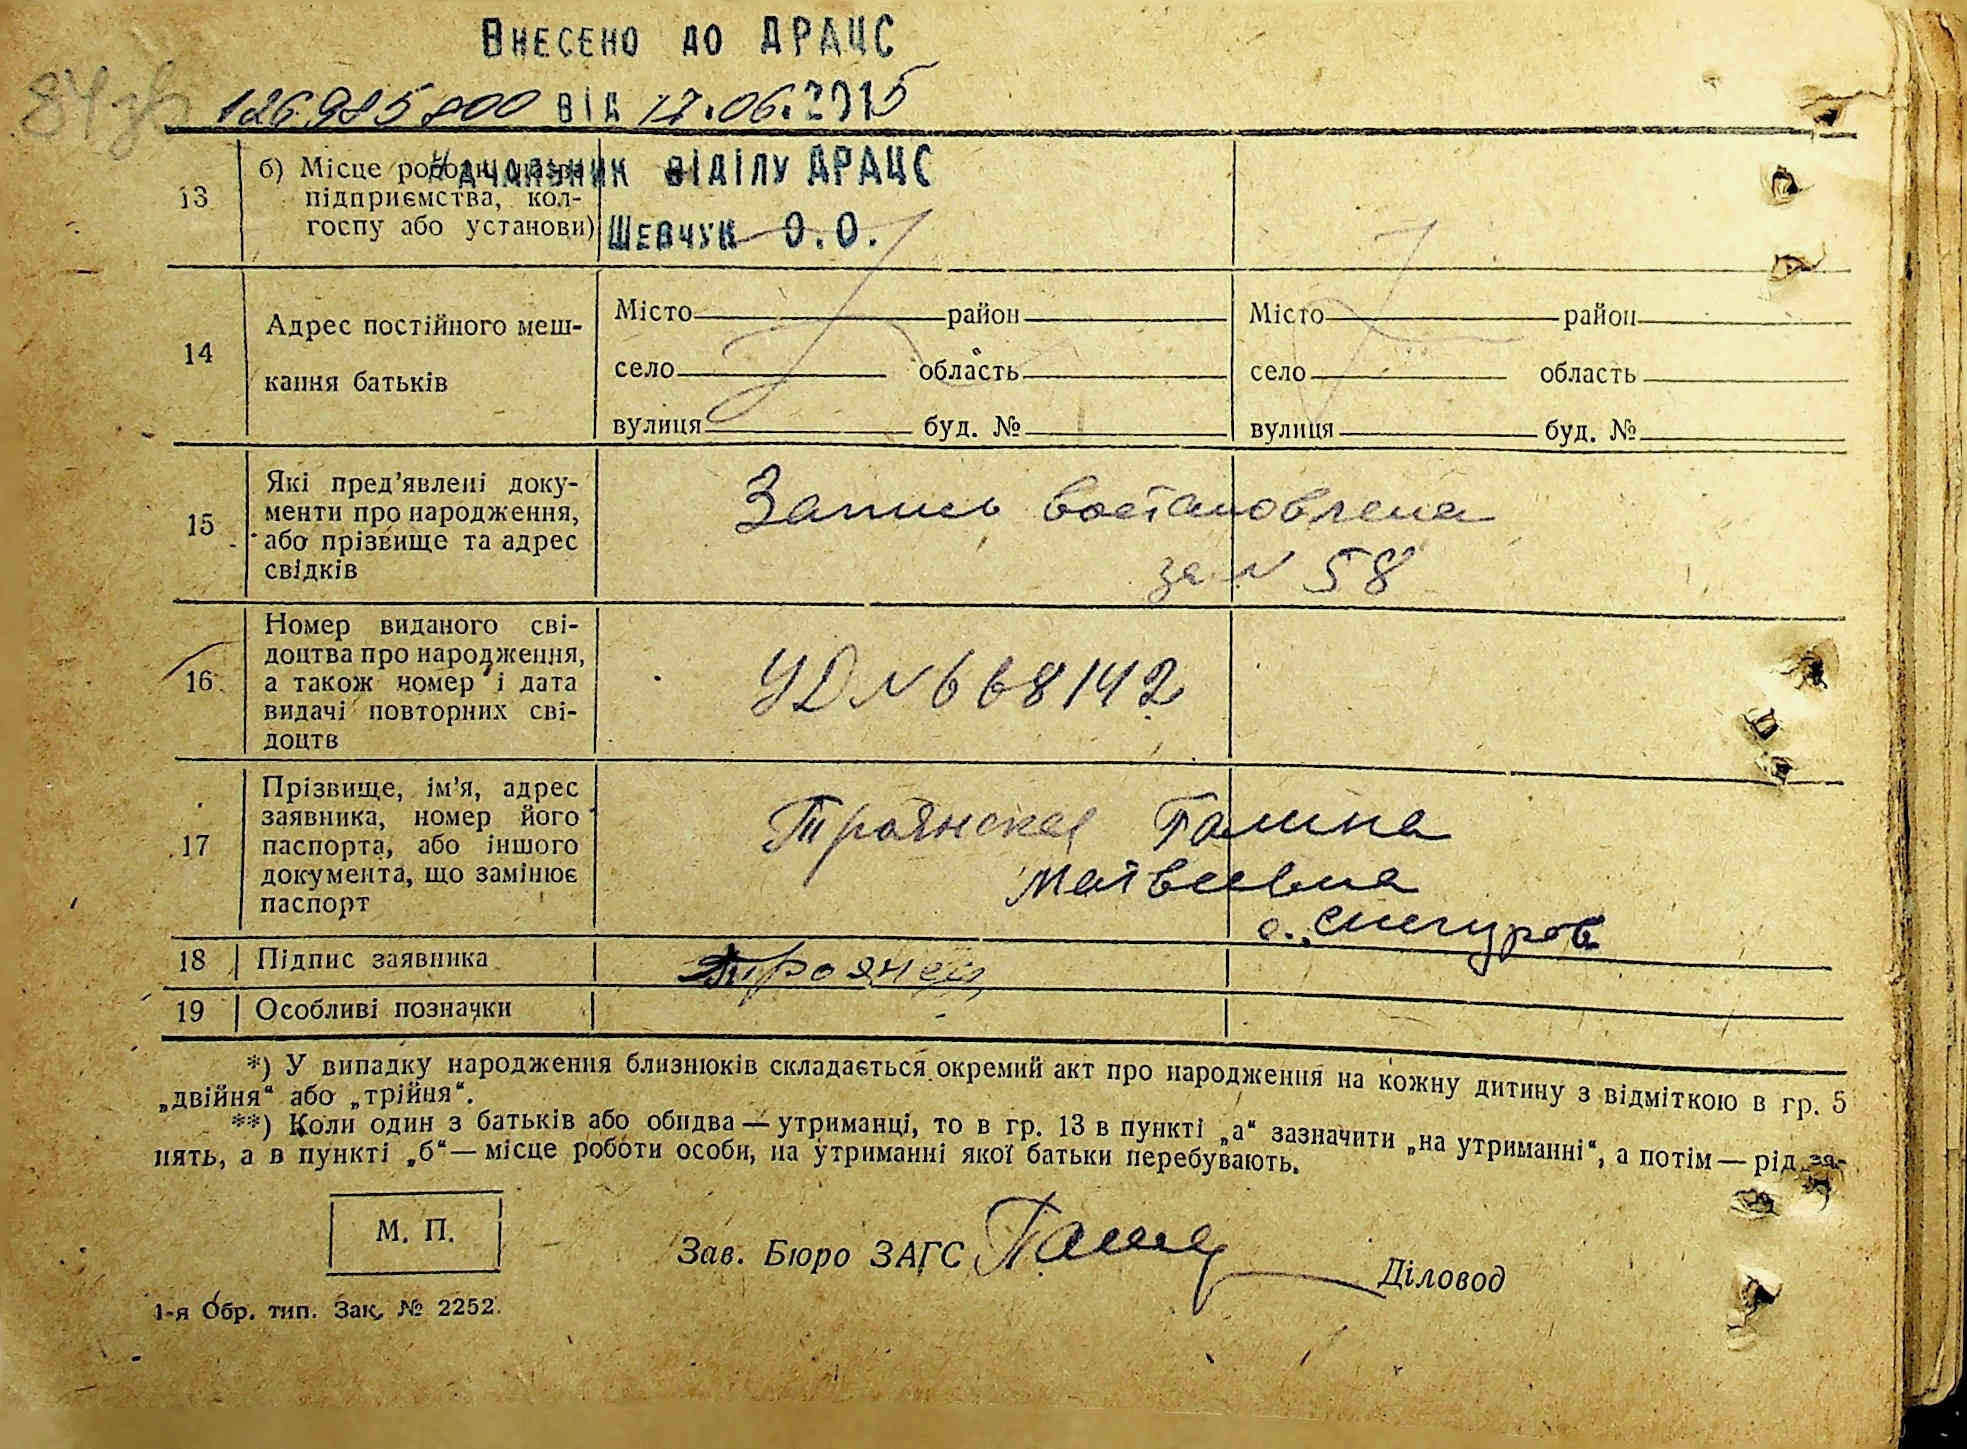 Внесено до ДРАЦС
84 зв
126985800 від 17.06.2015
Начальник відділу ДРАЦС
Шевчук О.О.
13 б) Місце роботи (назва
підприємства, кол-
госпу або установи)
14 Адрес постійного меш-
кання батьків
Місто район Місто район
село область село область
вулиця буд. № вулиця буд. №
15 Які пред'явлені доку-
менти про народження,
або прізвище та адрес
свідків
Запись востановлена
за N 58
16 Номер виданого сві-
доцтва про народження,
а також номер і дата
видачі повторних сві-
доцтв
УД N 668142
17 Прізвище, ім'я, адрес
заявника, номер його
паспорта, або іншого
документа, що замінює
паспорт
Троянская Галина
Матвеевна
с. Снегуров
18 Підпис заявника
19 Особливі позначки
*) У випадку народження близнюків складається окремий акт про народження на кожну дитину з відміткою в гр. 5
„двійня“ або „трійня“.
**) Коли один з батьків або обидва — утриманці, то в гр. 13 в пункті „а“ зазначити „на утриманні“, а потім — рід за-
нять, а в пункті „б“ — місце роботи особи, на утриманні якої батьки перебувають.
М. П.
Зав. Бюро ЗАГС Діловод
1-я Обр. тип. Зак. № 2252.